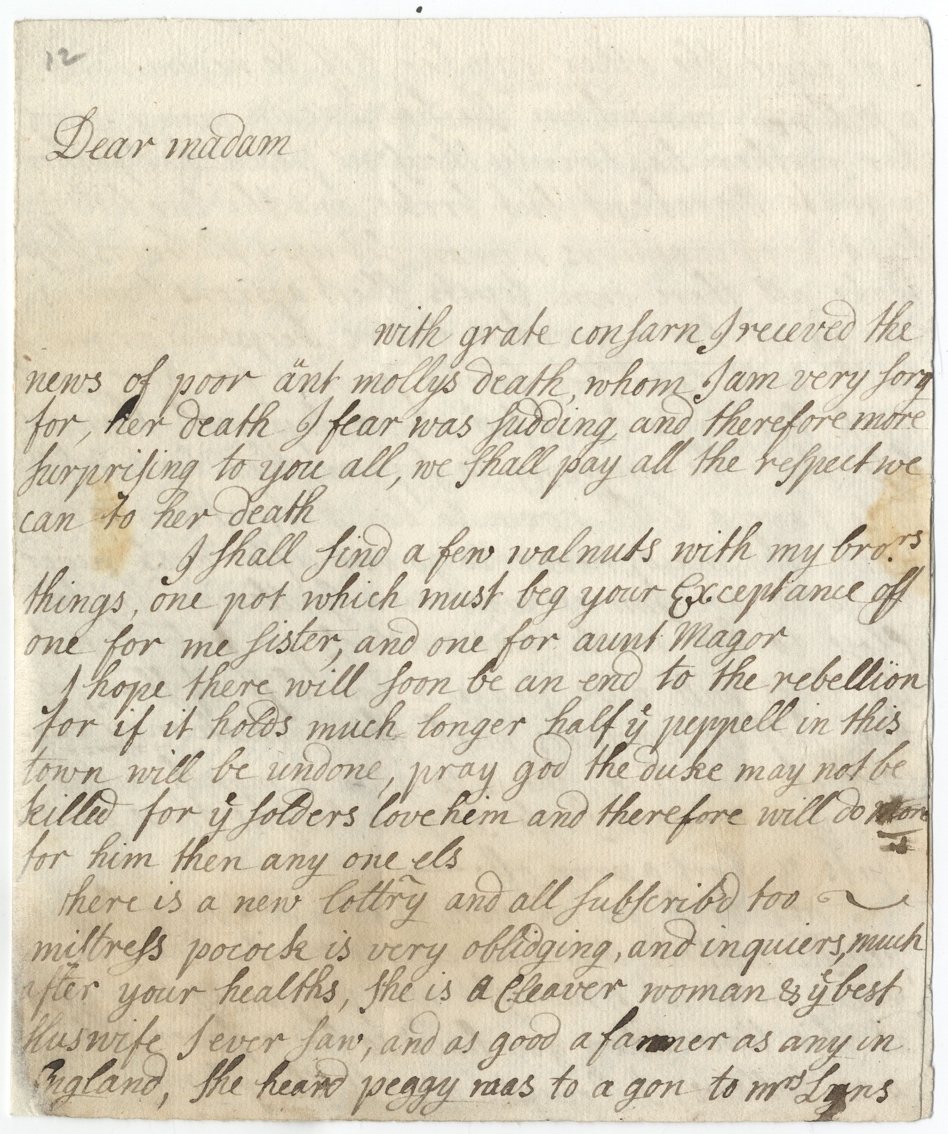 12
Dear madam
with grate consarn I receved the
news of poor änt mollys death, whom I am very sory
for, her death I fear was sudding and therefore more
surprising to you all, we shall pay all the respect we
can to her death
I shall sind a few walnuts with my brors
things, one pot which must beg your Exceptance off
one for me sister, and one for aunt Magor
I hope there will soon be an end to the rebellion
for if it holds much longer half ẏ peppell in this
town will be undone, pray god the duke may not be
killed for ẏ solders love him and therefore will do more
for him then any one els
there is a new lottry and all subscribd too
mistress pocock is very oblidging, and inquiers, much
after your healths, she is a Cleaver woman & ẏ best
Huswife I ever saw, and as good a farmer as any in
England, she heard peggy was to a gon to mrs Lyns